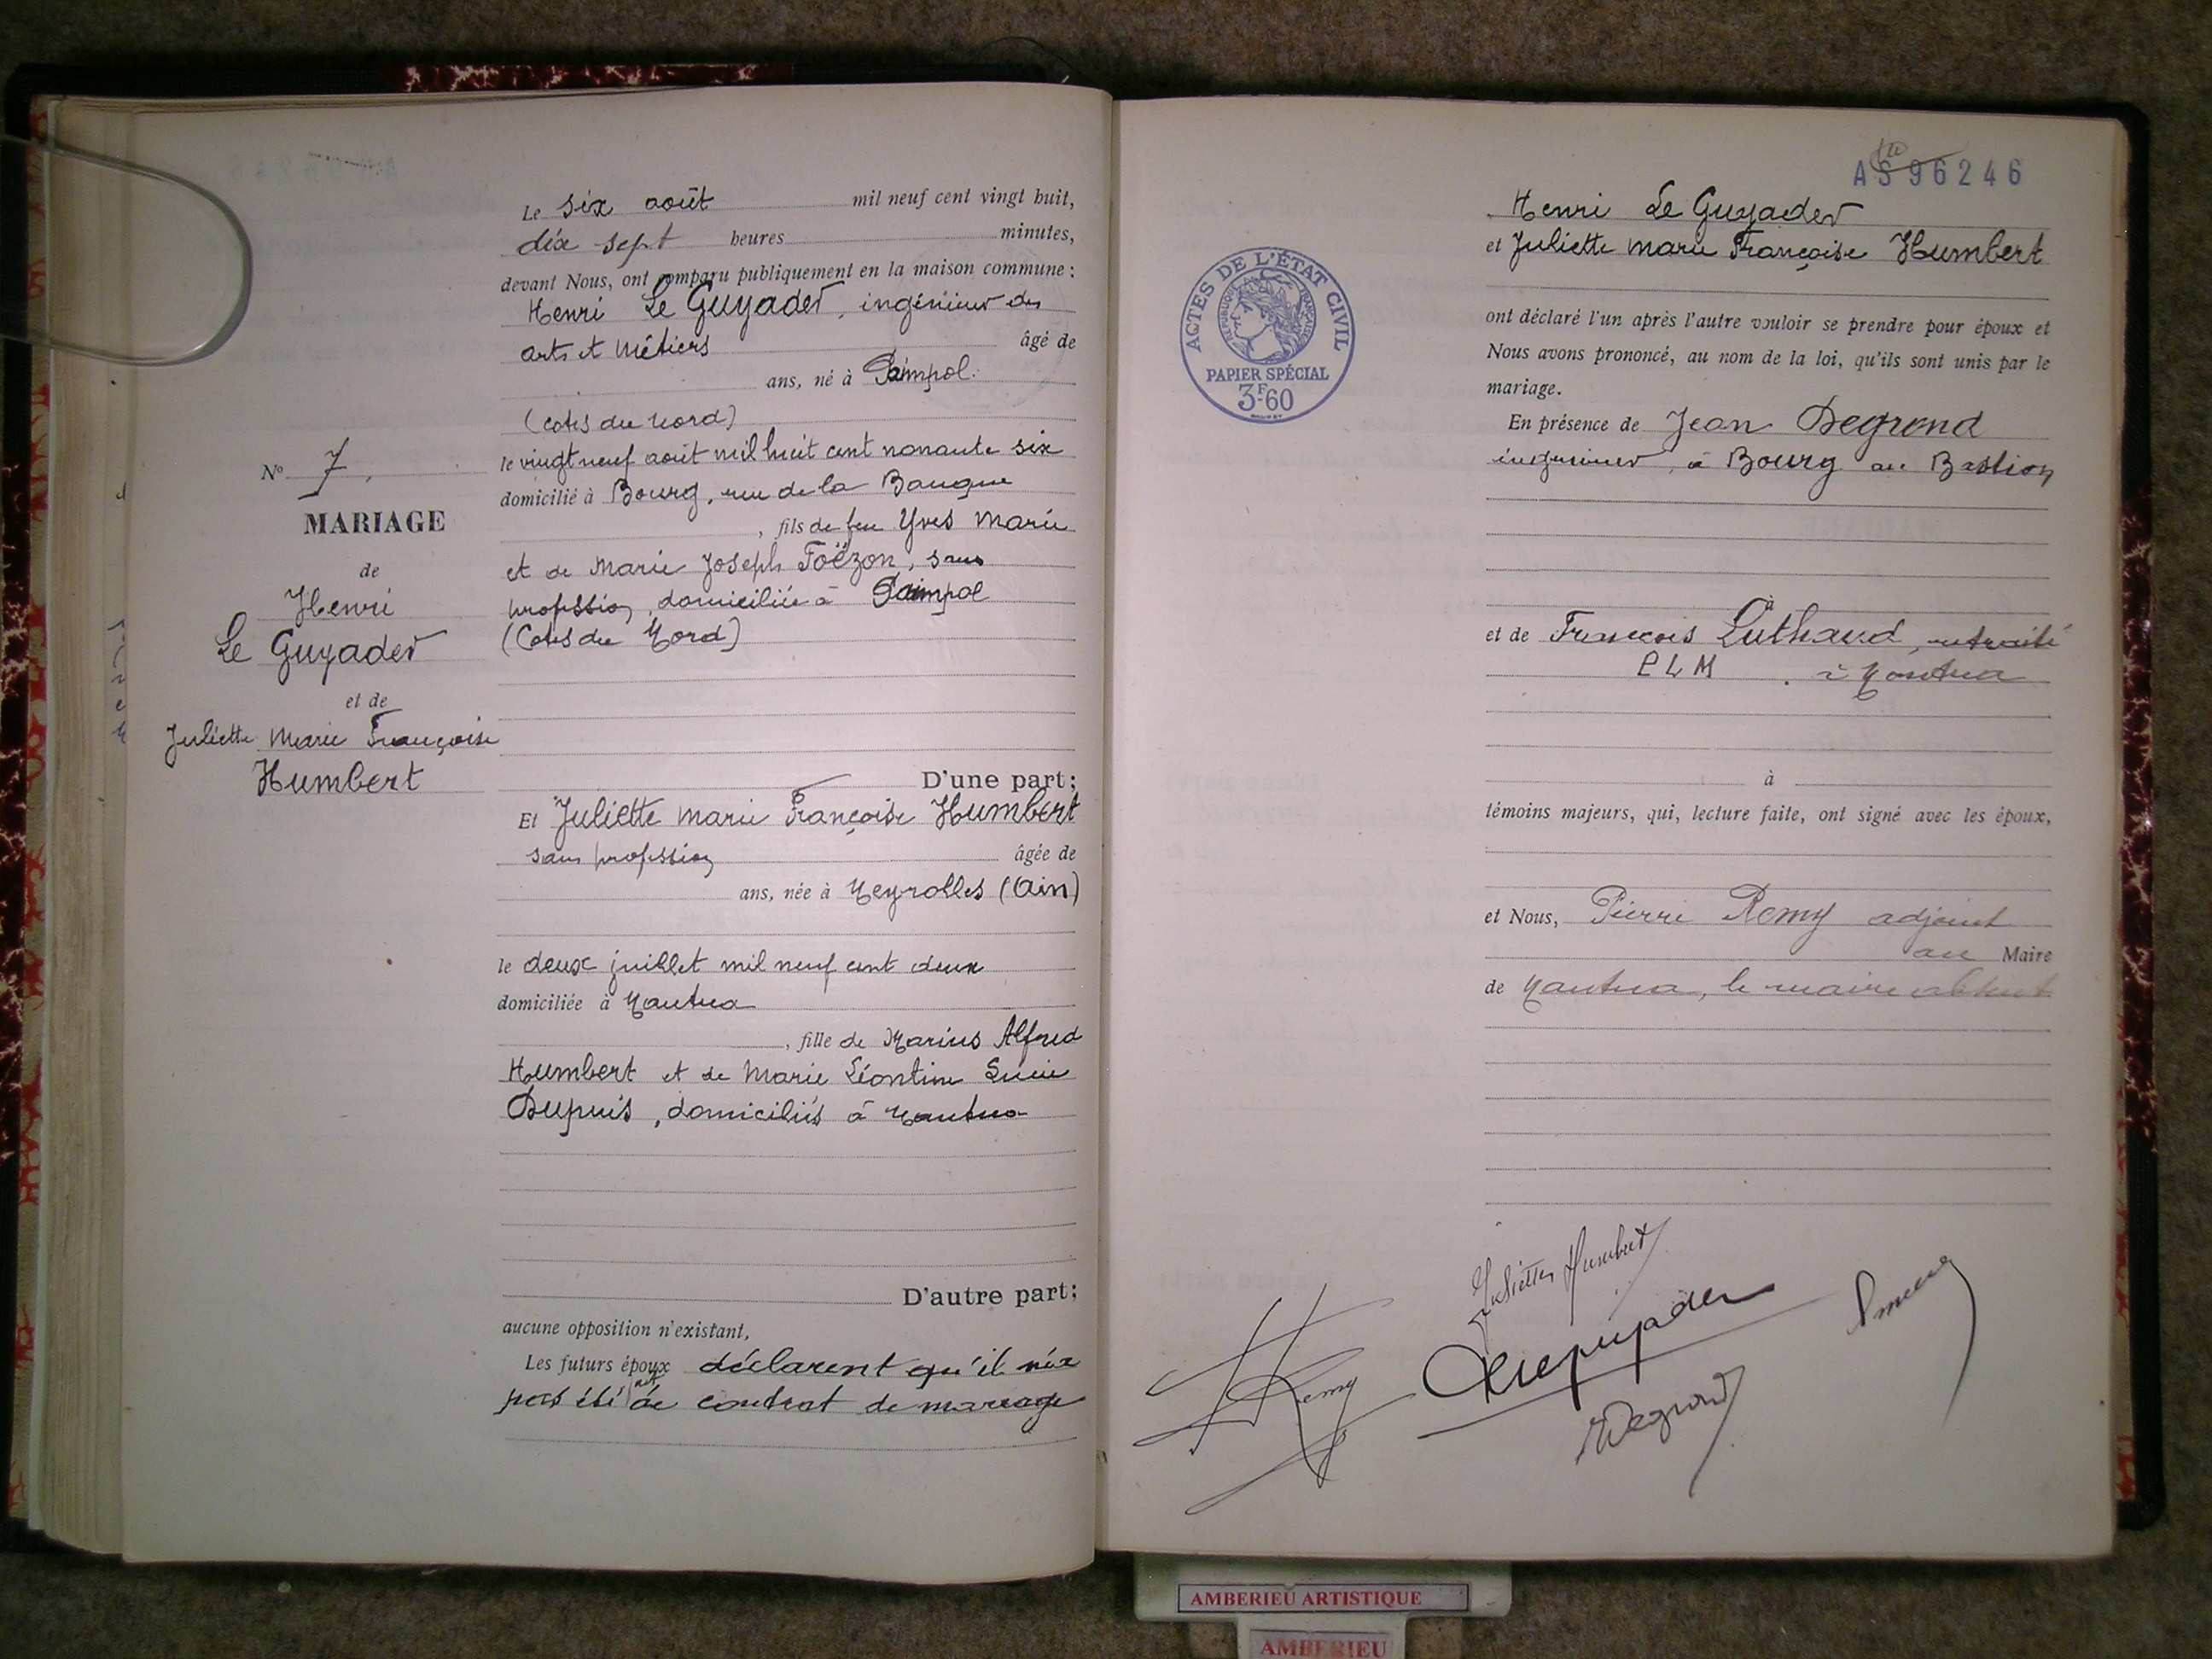 Le six août mil neuf cent vingt huit,
dix sept heures minutes,
devant Nous, ont comparu publiquement en la maison commune :
Henri Le Guyader, ingénieur des
arts et Métiers âgé de
ans, né à Paimpol
(Cotes du Nord)
le vingt neuf août mil huit cent nonante six
domicilié à Bourg, rue de la Banque
, fils de feu Yves Marie
et de Marie Joseph Toëzon, sans
profession, domiciliée à Paimpol
(Cotes du Nord)
D'une part;
Et Juliette Marie Françoise Humbert
sans profession âgée de
ans, née à Neyrolles (Ain)
le deux juillet mil neuf cent deux
domiciliée à Nantua
, fille de Marius Alfred
Humbert et de Marie Léontine Lucie
Dupuis, domiciliés à Nantua
D'autre part;
aucune opposition n'existant,
Les futurs époux déclarent qu'il n'a
pas été fait de contrat de mariage
N° 7.
MARIAGE
de
Henri
Le Guyader
et de
Juliette Marie Françoise
Humbert
AS 96246
Henri Le Guyader
et Juliette Marie Françoise Humbert
ont déclaré l'un après l'autre vouloir se prendre pour époux et
Nous avons prononcé, au nom de la loi, qu'ils sont unis par le
mariage.
En présence de Jean Degrond
ingénieur, à Bourg au Bastion
à
et de François Luthaud, retraité
PLM à Nantua
à
témoins majeurs, qui, lecture faite, ont signé avec les époux,
et Nous, Pierre Remy adjoint
au Maire
de Nantua, le maire absent
ACTES DE L'ÉTAT CIVIL
RÉPUBLIQUE FRANÇAISE
PAPIER SPÉCIAL
3F60
Juliette Humbert
Leguyader
Remy
Degrond
AMBERIEU ARTISTIQUE
AMBERIEU